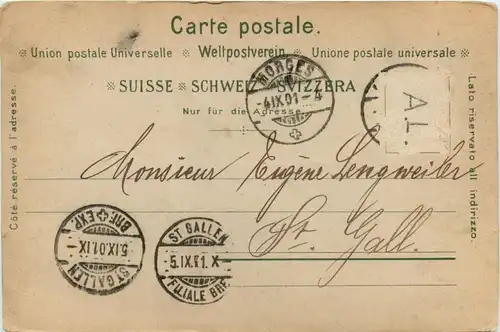 Carte postale.
* Union postale Universelle * Weltpostverein. * Unione postale universale *
* SUISSE * SCHWEIZ SVIZZERA
Nur für die Adresse.
MORGES
-4.IX.01-4
A.L.
Côté réservé à l'adresse.
Lato riservato all indirizzo.
Monsieur Eugène Lengweiler
St. Gall.
BRF EXP.
5.IX.01.IX
ST GALLEN
ST GALLEN
5.IX.01.X-
FILIALE BRF.